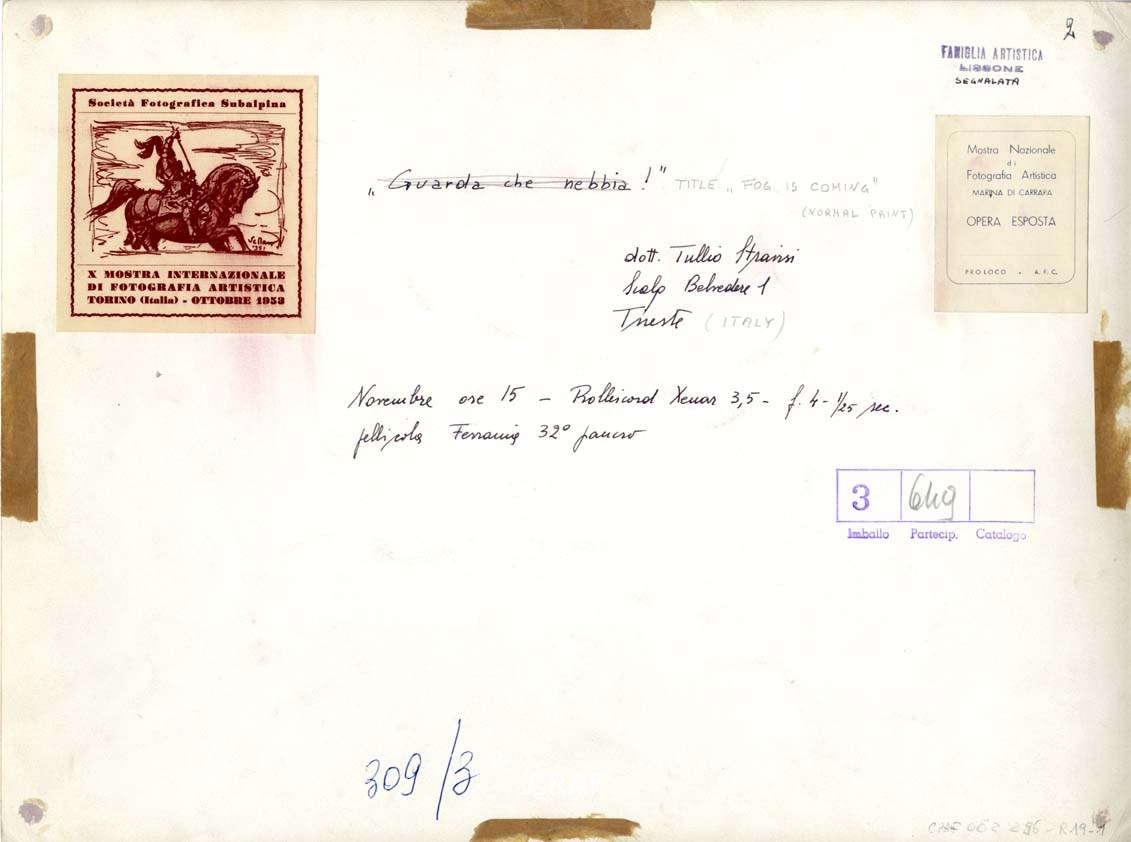 2
FAMIGLIA ARTISTICA
LISSONE
SEGNALATA
Società Fotografica Subalpina
X MOSTRA INTERNAZIONALE
DI FOTOGRAFIA ARTISTICA
TORINO (Italia) - OTTOBRE 1953
Mostra Nazionale
di
Fotografia Artistica
MARINA DI CARRARA
OPERA ESPOSTA
PRO LOCO - A.F.C.
„Guarda che nebbia!" TITLE „FOG IS COMING"
(NORMAL PRINT)
dott. Tullio Stravisi
Scala Belvedere 1
Trieste (ITALY)
Novembre ore 15 – Rolleicord Xenar 3,5 - f. 4 - 1/25 sec.
pellicola Ferrania 32° pancro
3 649
Imballo Partecip. Catalogo
309/3
CRAF